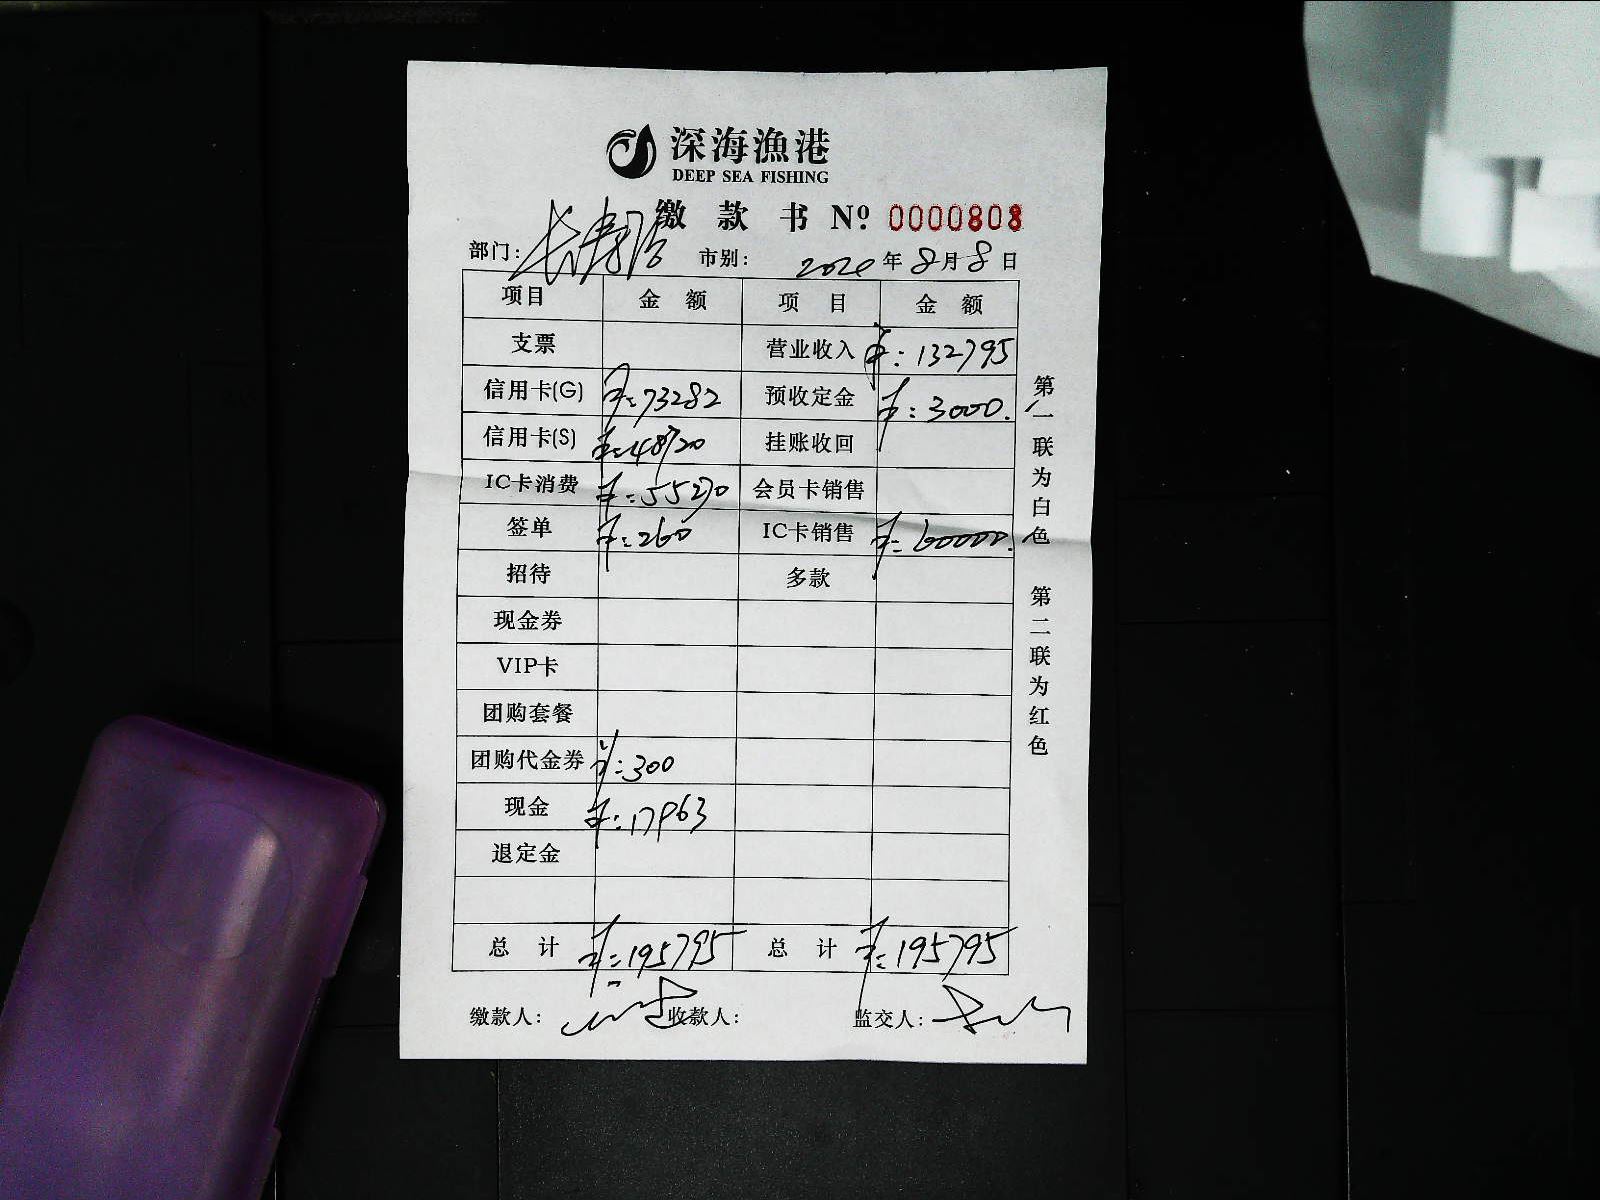 深海漁港
DEEP SEA FISHING
缴款书 Nº 0000808
部门: 长寿路 市别: 2020年8月8日
项目 金额 项目 金额
支票 营业收入 ¥:132795
信用卡(G) ¥:73282 预收定金 ¥:3000.
信用卡(S) ¥:48720 挂账收回
IC卡消费 ¥:55270 会员卡销售
签单 ¥:260 IC卡销售 ¥:60000.
招待 多款
现金券
VIP卡
团购套餐
团购代金券 ¥:300
现金 ¥:17963
退定金
总计 ¥:195795 总计 ¥:195795
缴款人: 收款人: 监交人:
第一联为白色 第二联为红色